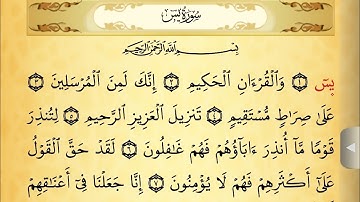 سُورَةُ يسٓ
بِسْمِ ٱللَّهِ ٱلرَّحْمَٰنِ ٱلرَّحِيمِ
يسٓ ١ وَٱلْقُرْءَانِ ٱلْحَكِيمِ ٢ إِنَّكَ لَمِنَ ٱلْمُرْسَلِينَ ٣
عَلَىٰ صِرَٰطٍ مُّسْتَقِيمٍ ٤ تَنزِيلَ ٱلْعَزِيزِ ٱلرَّحِيمِ ٥ لِتُنذِرَ
قَوْمًا مَّآ أُنذِرَ ءَابَآؤُهُمْ فَهُمْ غَٰفِلُونَ ٦ لَقَدْ حَقَّ ٱلْقَوْلُ
عَلَىٰٓ أَكْثَرِهِمْ فَهُمْ لَا يُؤْمِنُونَ ٧ إِنَّا جَعَلْنَا فِىٓ أَعْنَٰقِهِمْ